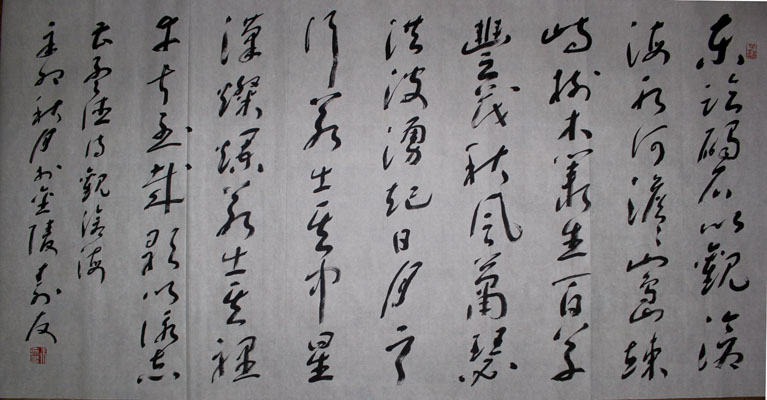 東臨碣石以觀滄
海水何澹々山島竦
峙樹木叢生百草
豐茂秋風蕭瑟
洪波湧起日月之
行若出其中星
漢燦爛若出其裡
幸甚至哉歌以詠志
曹孟德詩觀滄海
辛卯秋月於金陵